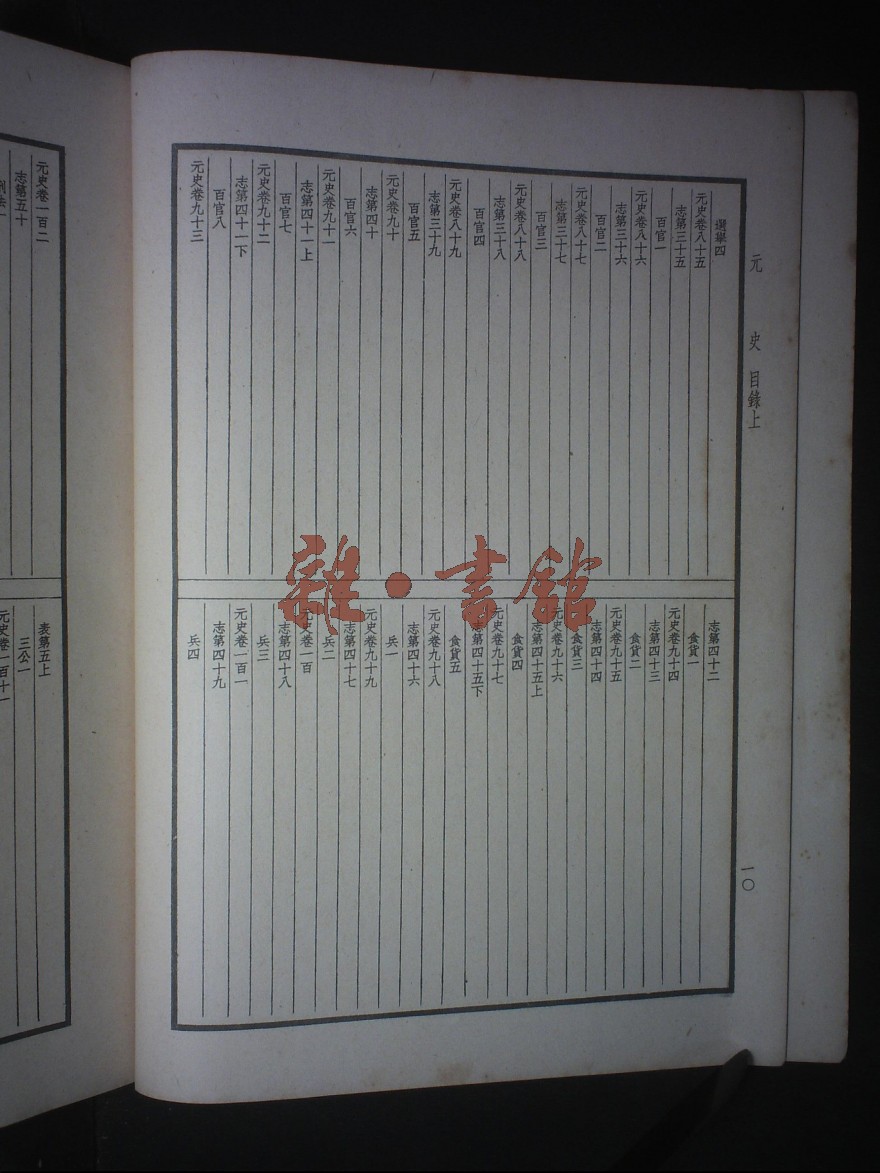 元 史 目錄上
一〇
選舉四
元史卷八十五
志第三十五
百官一
元史卷八十六
志第三十六
百官二
元史卷八十七
志第三十七
百官三
元史卷八十八
志第三十八
百官四
元史卷八十九
志第三十九
百官五
元史卷九十
志第四十
百官六
元史卷九十一
志第四十一上
百官七
元史卷九十二
志第四十一下
百官八
元史卷九十三
志第四十二
食貨一
元史卷九十四
志第四十三
食貨二
元史卷九十五
志第四十四
食貨三
元史卷九十六
志第四十五上
食貨四
元史卷九十七
志第四十五下
食貨五
元史卷九十八
志第四十六
兵一
元史卷九十九
志第四十七
兵二
元史卷一百
志第四十八
兵三
元史卷一百一
志第四十九
兵四
元史卷一百二
志第五十
刑法一
表第五上
三公一
元史卷一百十一
雜·書館